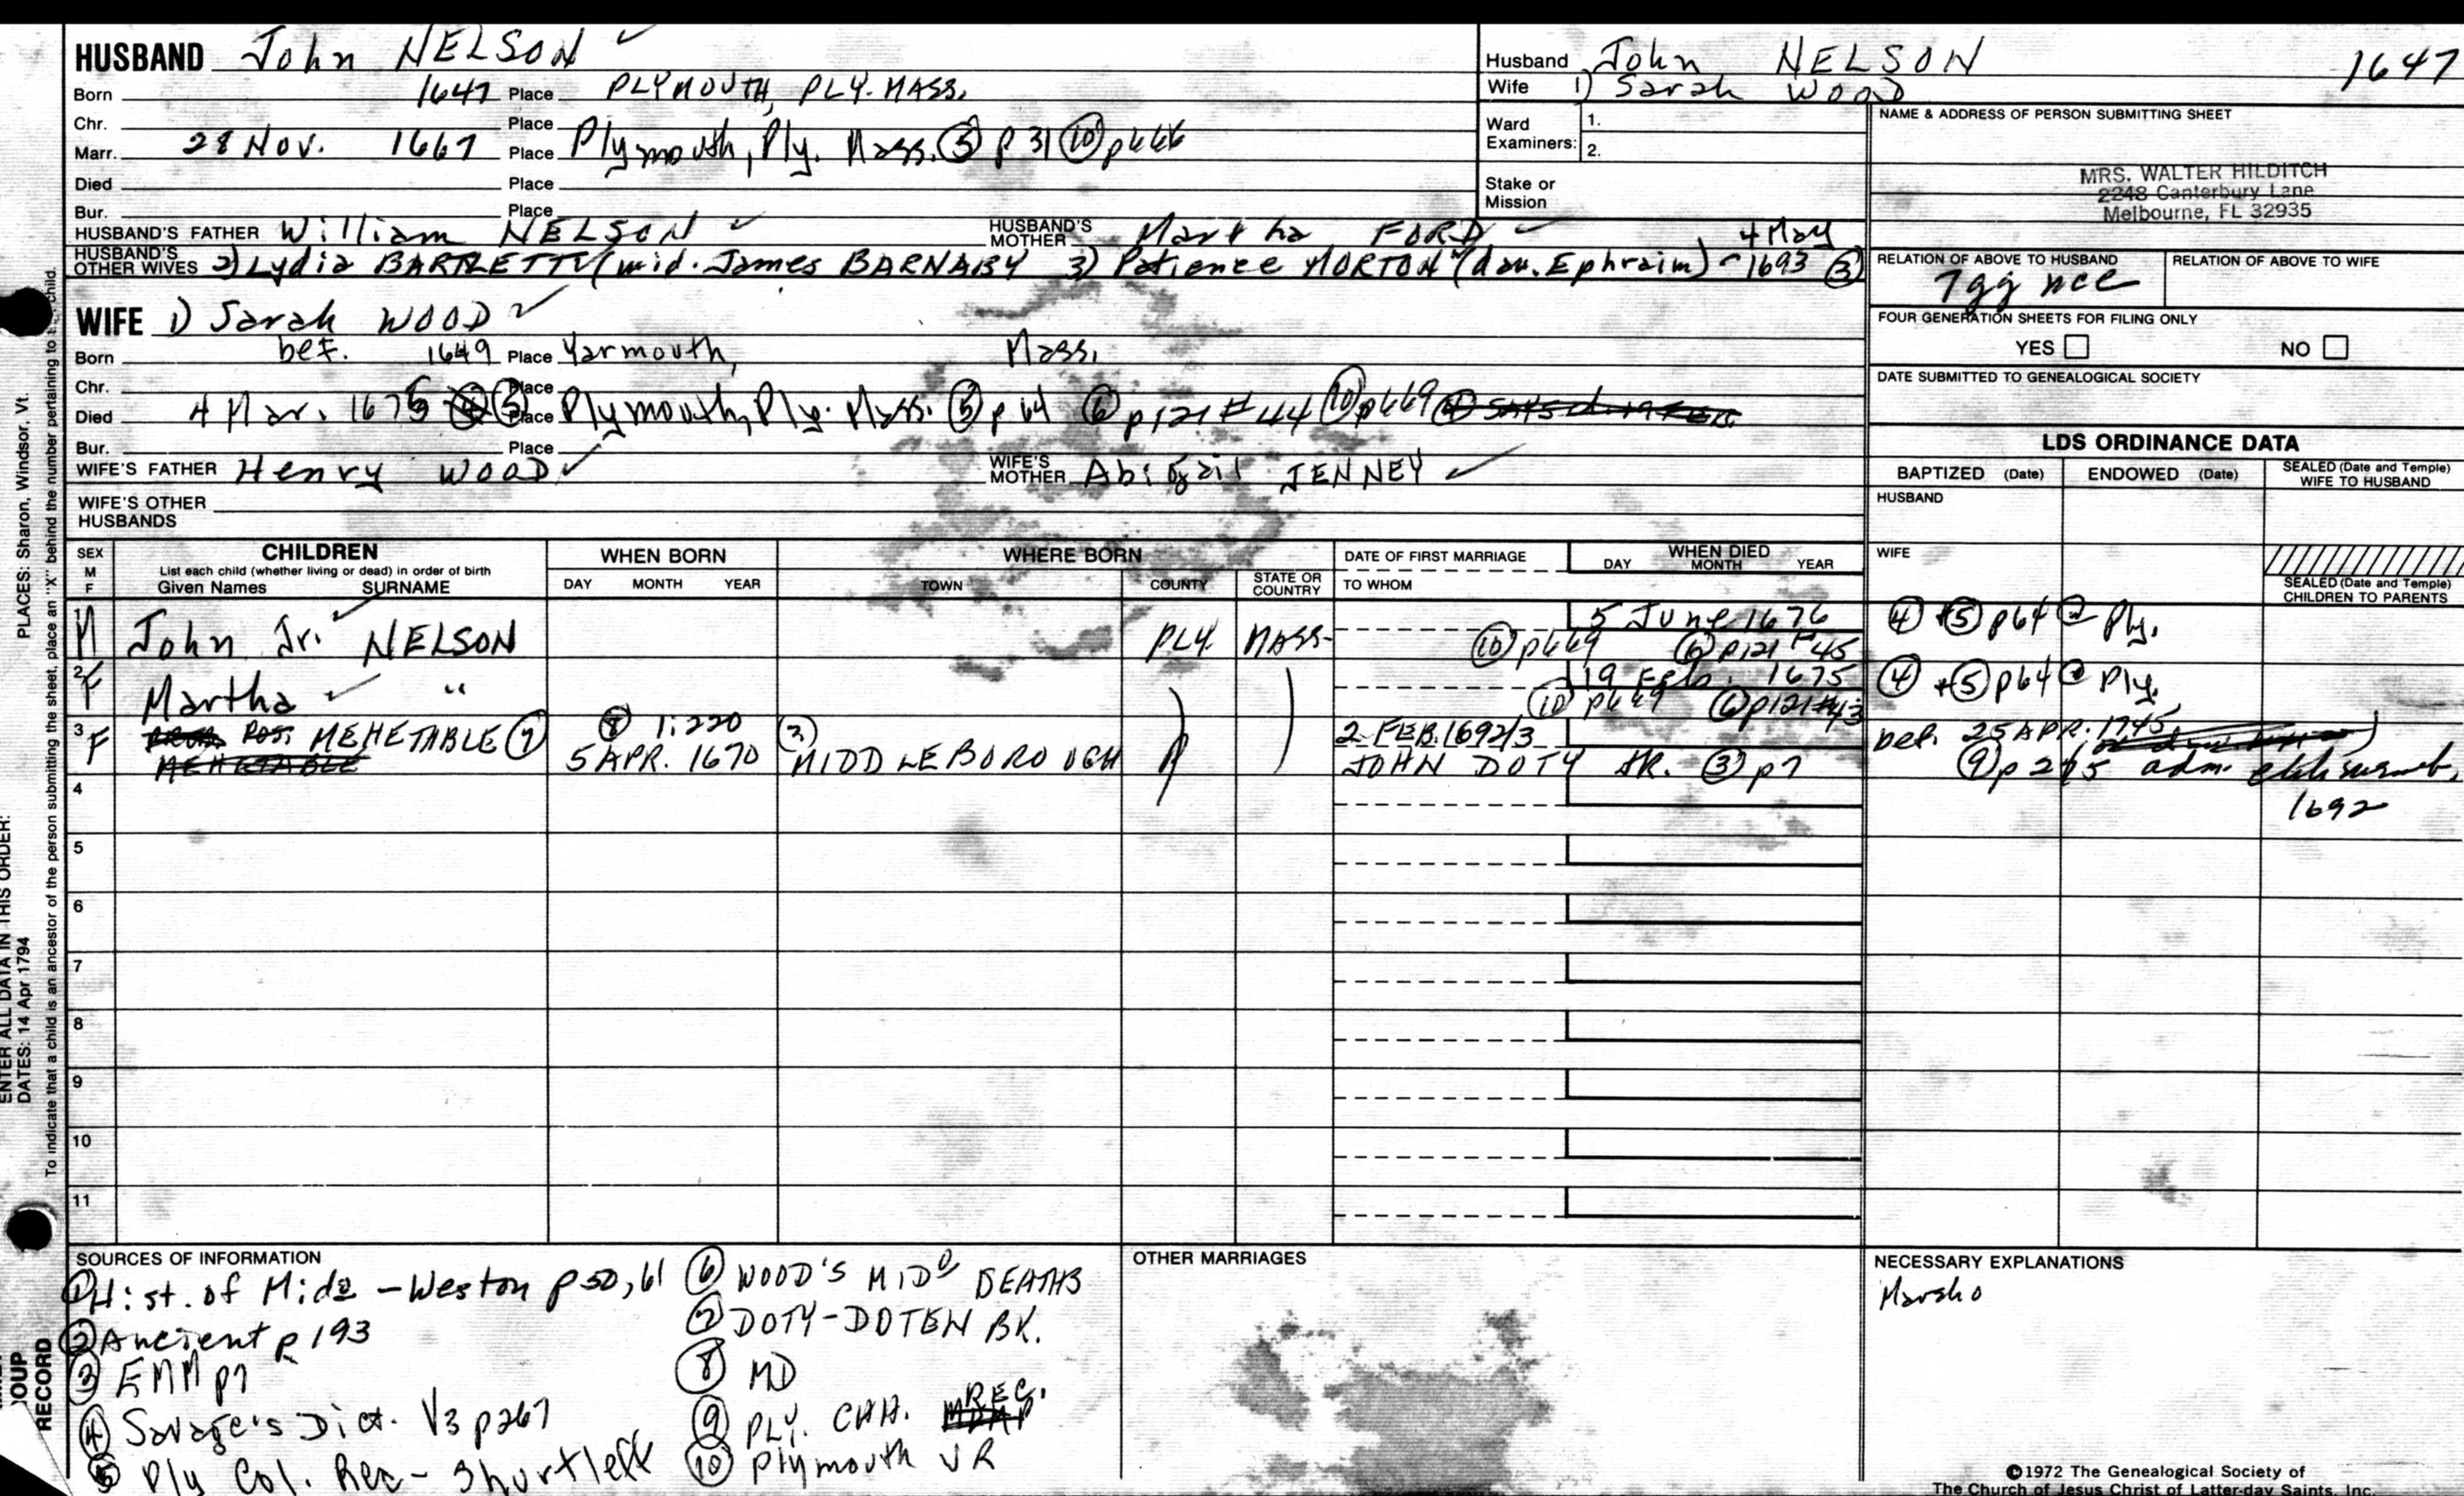 HUSBAND John NELSON ✓
Born 1647 Place PLYMOUTH, PLY. MASS.
Chr. Place
Marr. 28 Nov. 1667 Place Plymouth, Ply. Mass. ⑤ p 31 ⑩ p666
Died Place
Bur. Place
HUSBAND'S FATHER William NELSON ✓ HUSBAND'S MOTHER Martha FORD ✓
HUSBAND'S OTHER WIVES 2) Lydia BARTLETT (wid. James BARNABY 3) Patience MORTON (dau. Ephraim) - 4 May 1693 ③
Husband John NELSON 1647
Wife 1) Sarah WOOD
Ward Examiners: 1.
2.
Stake or Mission
NAME & ADDRESS OF PERSON SUBMITTING SHEET
MRS. WALTER HILDITCH
2248 Canterbury Lane
Melbourne, FL 32935
RELATION OF ABOVE TO HUSBAND RELATION OF ABOVE TO WIFE
7gg nce
FOUR GENERATION SHEETS FOR FILING ONLY
YES NO
DATE SUBMITTED TO GENEALOGICAL SOCIETY
WIFE 1) Sarah WOOD ✓
Born bef. 1649 Place Yarmouth, Mass.
Chr. Place
Died 4 Mar. 1675 ⑤ Place Plymouth, Ply. Mass. ⑤ p 64 ⑥ p121 #44 ⑩ p669
Bur. Place
WIFE'S FATHER Henry WOOD ✓ WIFE'S MOTHER Abigail JENNEY ✓
WIFE'S OTHER HUSBANDS
LDS ORDINANCE DATA
BAPTIZED (Date) ENDOWED (Date) SEALED (Date and Temple) WIFE TO HUSBAND
HUSBAND
WIFE
SEALED (Date and Temple) CHILDREN TO PARENTS
SEX M F CHILDREN WHEN BORN WHERE BORN DATE OF FIRST MARRIAGE WHEN DIED
List each child (whether living or dead) in order of birth
Given Names SURNAME DAY MONTH YEAR TOWN COUNTY STATE OR COUNTRY TO WHOM DAY MONTH YEAR
1 M John Jr. NELSON ✓ PLY. MASS. 5 June 1676 ④ + ⑤ p64 @ Ply.
⑩ p669 ⑥ p121 #45
2 F Martha ✓ " 19 Feb. 1675 ④ + ⑤ p64 @ Ply.
⑩ p669 ⑥ p121 #43
3 F POS. MEHETABLE ⑦ ⑧ 1:220 ② 2 FEB. 1692/3 bef. 25 APR. 1745
5 APR. 1670 MIDDLEBOROUGH JOHN DOTY JR. ③ p7 ⑨ p 215 adm.
1692
4
5
6
7
8
9
10
11
SOURCES OF INFORMATION
① Hist. of Mido - Weston p50, 61
② Ancient p 193
③ EMM p7
④ Savage's Dict. V3 p267
⑤ Ply Col. Rec - Shurtleff
⑥ WOOD'S MIDO DEATHS
⑦ DOTY-DOTEN BK.
⑧ MD
⑨ PLY. CHH. REC.
⑩ Plymouth VR
OTHER MARRIAGES
NECESSARY EXPLANATIONS
©1972 The Genealogical Society of
The Church of Jesus Christ of Latter-day Saints, Inc.
PLACES: Sharon, Windsor, Vt.
ENTER ALL DATA IN THIS ORDER:
DATES: 14 Apr 1794
To indicate that a child is an ancestor of the person submitting the sheet, place an "X" behind the number pertaining to child.
RECORD